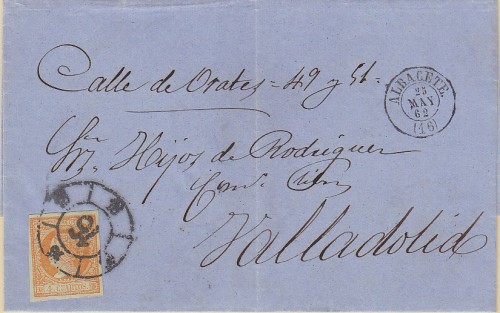 Calle de Orates = 49 y 51 =
ALBACETE.
25
MAY
62
(16)
Sres. Hijos de Rodriguez
Valladolid
4 CUARTOS.